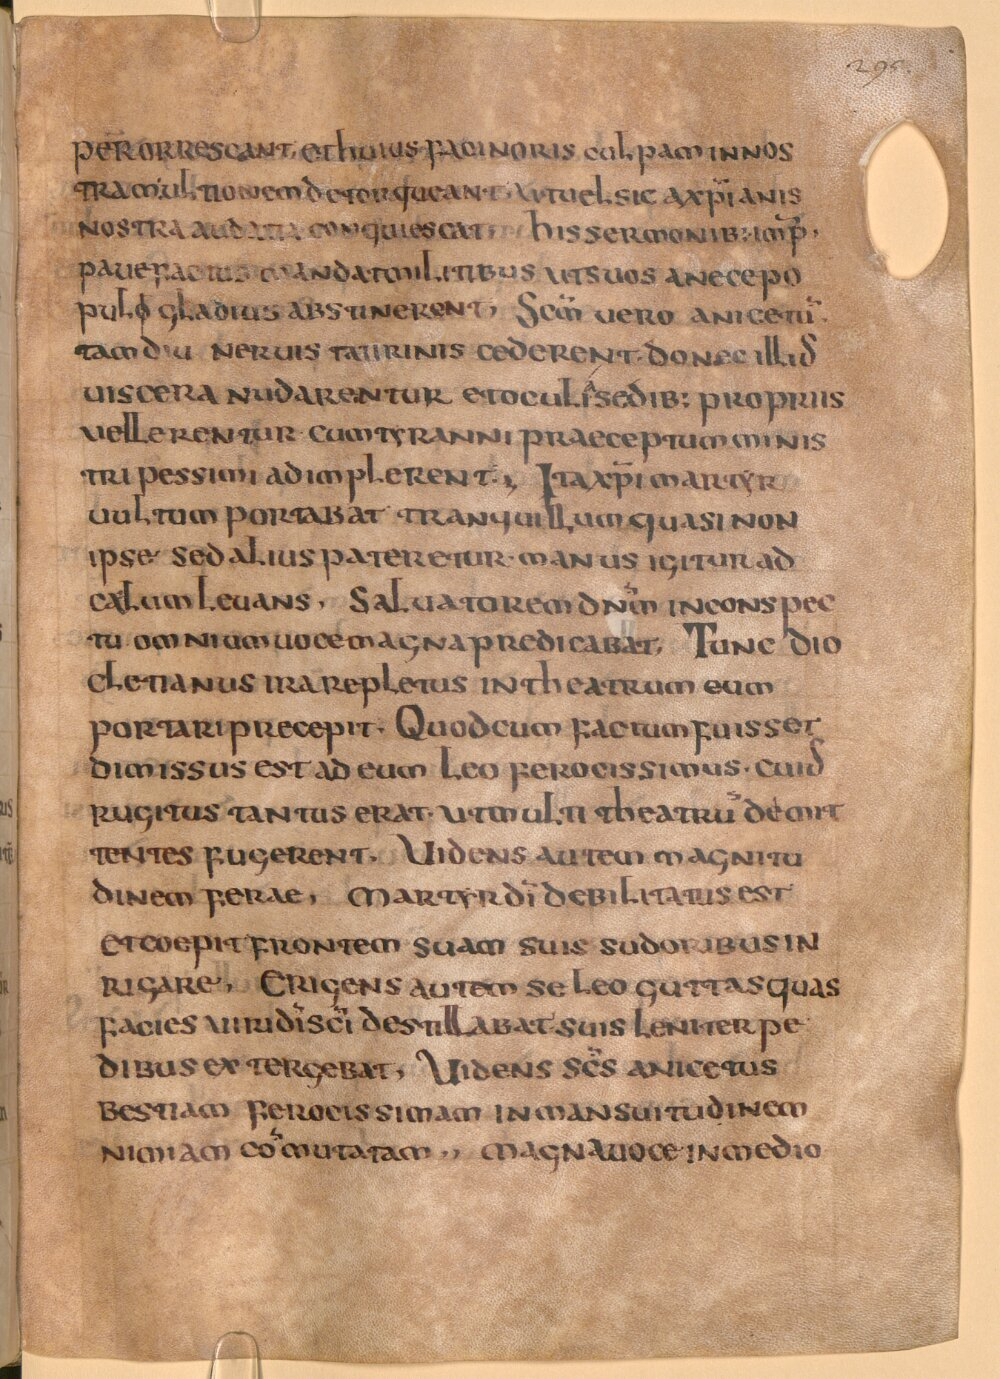 295.
per̄orrescant, et huius facinoris culpam in nos
tram ultionem detorqueant. Ut vel sic a xp̄ianis
nostra audatia conquiescat, his sermonib: imp̄,
pavefactus mandat militibus ut suos a nece po
pulo gladius abstinerent, Scm̄ vero anicetū.
tamdiu nervis taurinis cederent donec illiđ
viscera nudarentur et oculi a sedib: propriis
vellerentur. cum tyranni praeceptum minis
tri pessimi adimplerent, Ita xp̄i martyr
vultum portabat tranquillum quasi non
ipse sed alius pateretur. manus igitur ad
cælum levans, Salvatorem dn̄m in conspec
tu omnium voce magna predicabat, Tunc dio
cletianus ira repletus in theatrum eum
portari precepit. Quod cum factum fuisset
dimissus est ad eum leo ferocissimus. cuiđ
rugitus tantus erat. ut multi theatrū demit
tentes fugerent, Videns autem magnitu
dinem ferae, martyr dī debilitatus est
et coepit frontem suam suis sudoribus in
rigare, Erigens autem se leo guttas quas
facies viri dī scī destillabat suis leniter pe
dibus extergebat, Videns scs̄ anicetus
bestiam ferocissimam in mansuitudinem
nimiam cōmutatam,, magna voce in medio